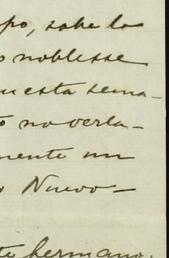 po, sabe la
o noblesse
uesta sema-
o no verla-
mente un
o Nuevo-
te hermano,